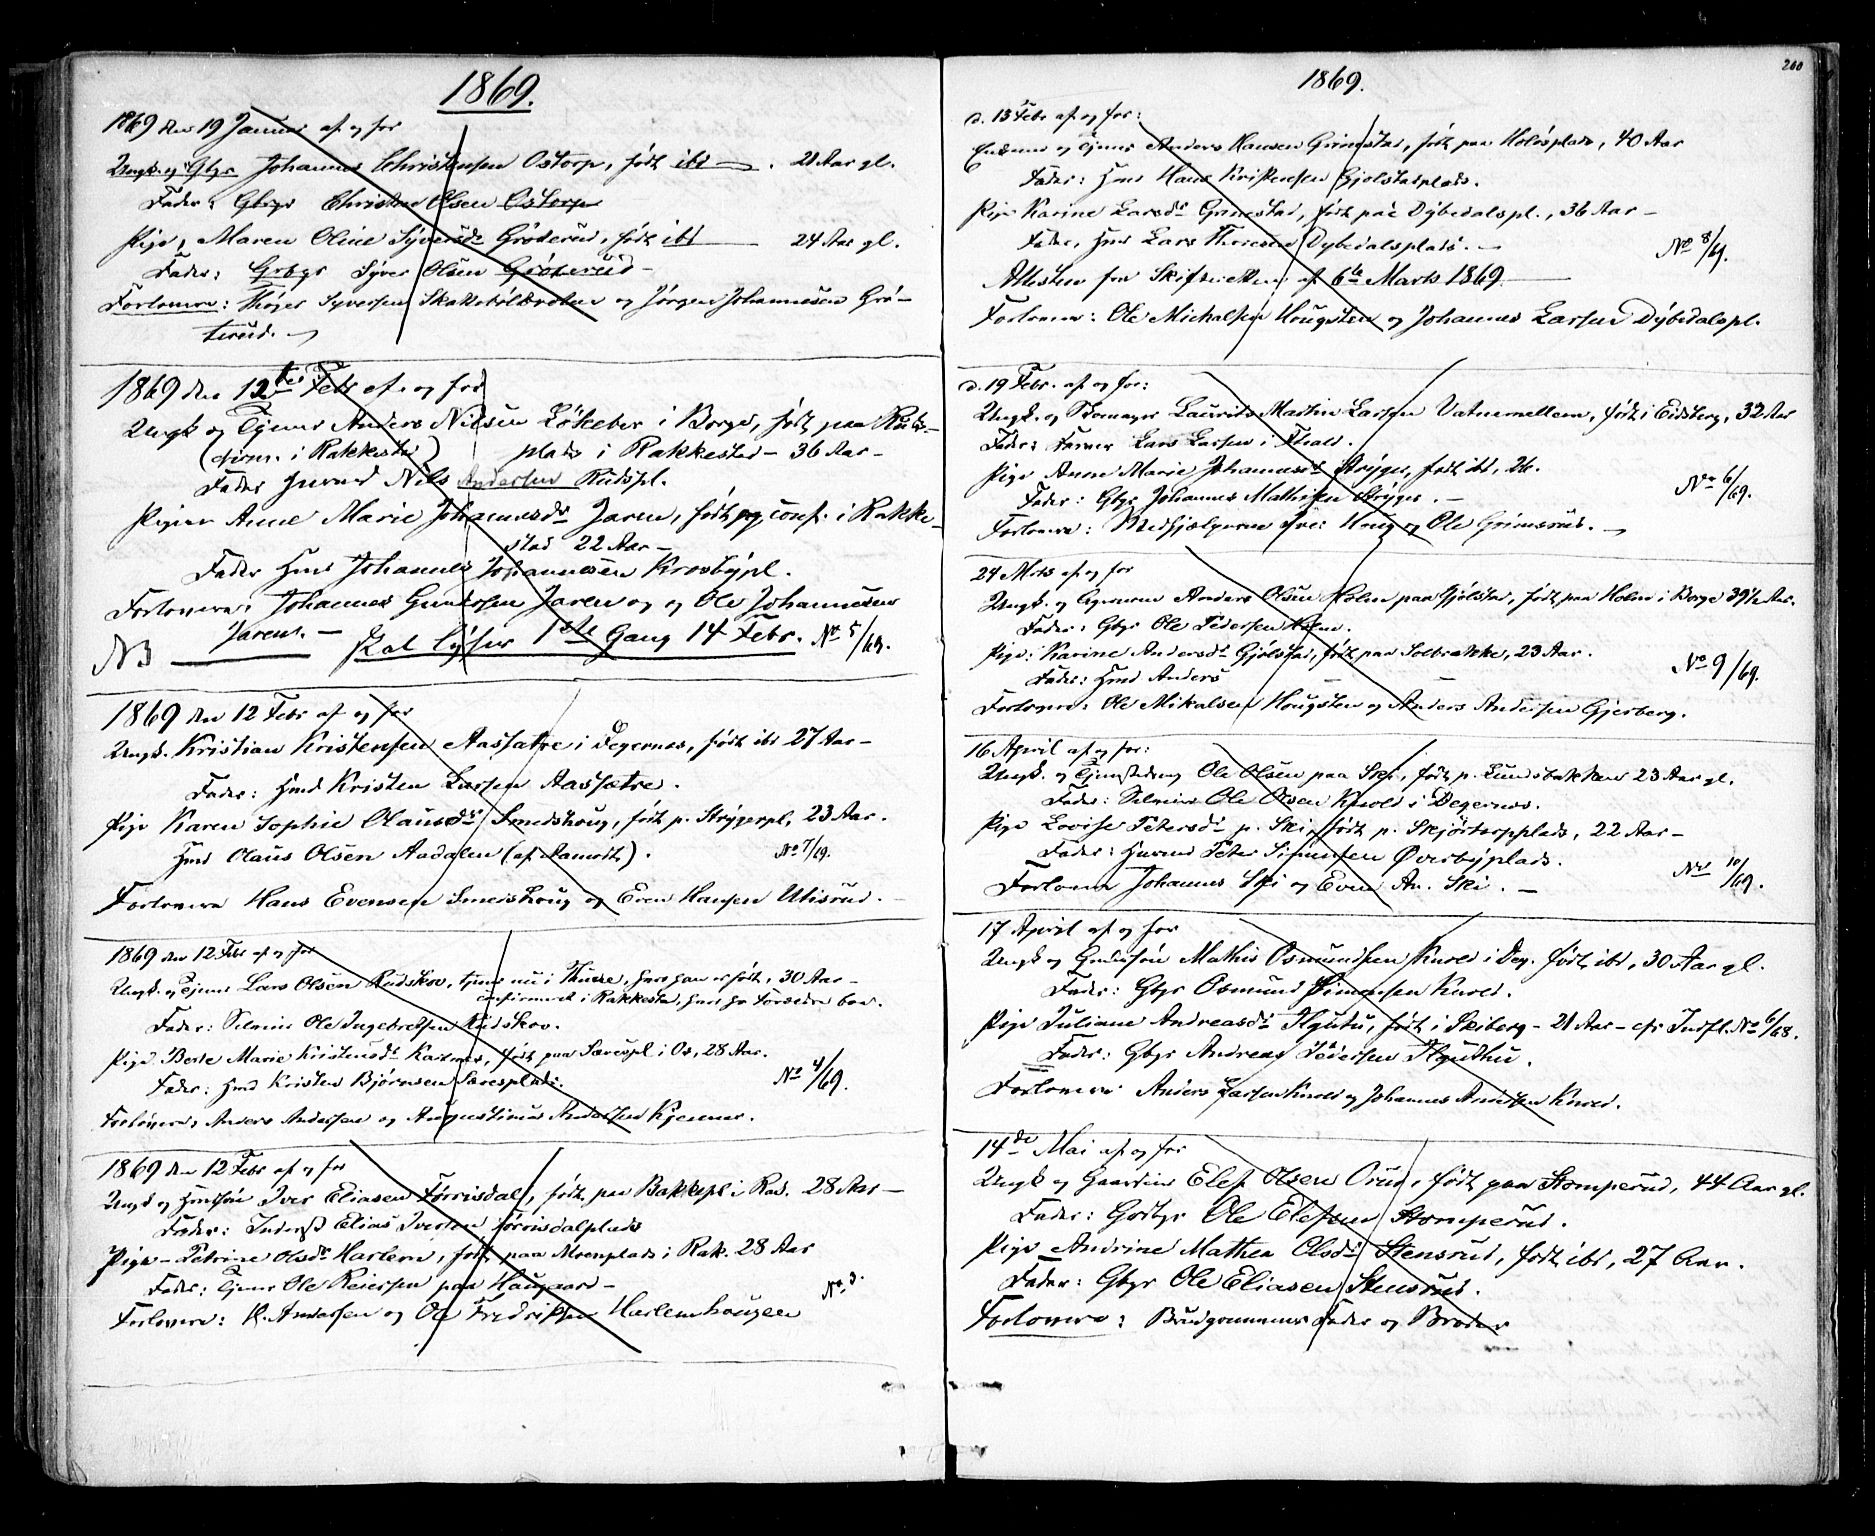 1869.
1869 den 19 Januar af og for
Ungk. og Gbr. Johannes Christensen Ostorp, født ibd 21 Aar gl.
Fader: Gbgr Christen Olsen Ostorp
Pige, Maren Oline Syversdr Gröterud, født ibd 24 Aar gl.
Fader: Grbgr Syver Olsen Gröterud –
Forlovere: Thöger Syversen Skakkebölbraaten og Jörgen Johannesen Grö-
terud.
1869 den 12te Febr af og for
Ungk og Tjener Anders Nilsen Lökeber i Borge, født paa Ruds-
plads i Rakkestad – 36 Aar –
Fader Husmd Nils Andersen Rudspl.
Pigen Anne Marie Johannesdr Jaren, født og conf. i Rakke-
stad 22 Aar –
Fader Hmd Johannes Johannessen Krosbypl.
Forlovere: Johannes Gundersen Jaren og og Ole Johannesen
Jaren. –
NB Kat lyser 1ste Gang 14 Febr. No 5/69.
1869 den 12 Febr af og for
Ungk. Kristian Kristensen Aassætre i Degernes, født ibd 27 Aar –
Fader: Hmd Kristen Larsen Aassætre.
Pige Karen Sophie Olausdr Smedshoug, født p. Strygerpl, 23 Aar.
Hmd Olaus Olsen Aadalen (af Aamodt). No 7/69.
Forlovere Hans Evensen Smedshoug og Even Hansen Utisrud.
1869 den 12 Febr af og for
Ungk. og Tjener Lars Olsen Rudskov, tjener nu i Thune, hvor han er født, 30 Aar –
confirmeret i Rakkestad, hvor hs Forældre boe.
Fader: Selveier Ole Ingebretsen Rudskov.
Pige Berte Marie Kristensdr født paa Særespl. i Os, 28 Aar.
Fader: Hmd Kristen Björnsen Særesplads. No 4/69.
Forlovere, Anders Andersen og Augustinus Andersen Kjenner.
1869 den 12 Febr af og for
Ungk og Iver Eliasen Förrisdal, født paa Bakkepl i Rak. 28 Aar –
Fader: Inderst Elias Iversen Förrisdalplads
Pige – Petrine Olsdr Harlem, født paa Moenplads i Rak. 28 Aar
Fader: Tjener Ole Reiersen paa Haugaard – No 3.
Forlovere: H. Andersen og Ole Fredriksen Harlemhougen
200
1869.
d. 13 Febr af og for:
Enkemd og Tjener Anders Hansen Grimstad, født paa Holösplads, 40 Aar
Fader: Hmd Hans Kristensen Gjolstadplads.
Pige Karine Larsdr Grimstad, født paa Dybedalspl., 36 Aar –
Fader, Hmd Lars Thoresen Dybedalsplads. – No 8/69.
Attesten fra Skifteretten af 6te Marts 1869
Forlovere: Ole Mickalsen Hougsten og Johannes Larsen Dybedalspl.
d. 19 Febr. af og for:
Ungk. og Skomager Laurits Martin Larsen Vatnemellem, født i Eidsberg, 32 Aar
Fader: Farver Lars Larsen i Fhald.
Pige Anne Marie Johannesdr Stryger, født ibd, 26.
Fader: Gbgr Johannes Mathisen Stryger. – No 6/69.
Forlovere: Medhjælperne Houg og Ole Grimsrud. –
24 Mrts af og for
Ungk. og Anders Olsen Holm paa Gjölstad, født paa Holm i Borge 39½ Aar.
Fader: Gbgr Ole Pedersen Holm.
Pige: Karine Andersdr Gjölstad, født paa Solbrække, 23 Aar.
Fader: Hmd Anders – – No 9/69.
Forlovere: Ole Mikalsen Hougsten og Anders Andersen Gjerberg.
16 April af og for:
Ungk. og Tjenestedreng Ole Olsen paa Ski, født p. Lundsbakken 23 Aar gl.
Fader: Selveier Ole Olsen Knold i Degernes.
Pige Lovise Petersdr p. Ski, født p. Skjörtorpplads, 22 Aar –
Fader: Husmd Peter Simensen Överbyplads. No 10/69.
Forlovere Johannes Ski og Even An. Ski. –
17 April af og for
Ungk og Mathis Osmundsen Knold i Deg. født ibd, 30 Aar gl.
Fader: Gbgr Osmund Simensen Knold.
Pige Juliane Andreasdr født i Skiberg – 21 Aar – cfr Indfl. No 6/68.
Fader: Gbgr Andreas Pedersen
Forlovere: Anders Larsen Knold og Johannes Andersen Knold.
14de Mai af og for
Ungk og Gaardeier Elef Olsen Orud, født paa Stomperud, 44 Aar gl.
Fader: Gbgr Ole Elefsen Stomperud.
Pige Andrine Mathea Olsdr Stensrud, født ibd, 27 Aar.
Fader: Gbgr Ole Eliasen Stensrud.
Forlovere: Brudgommens Fader og Broder